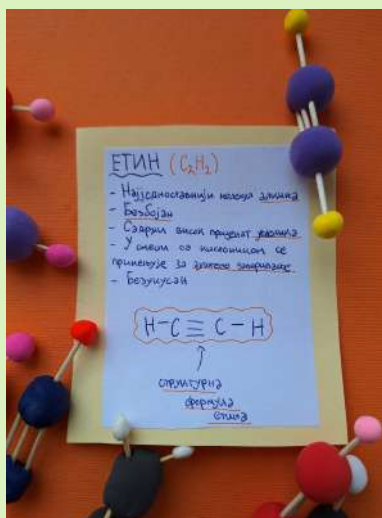 ЕТИН (C₂H₂)
- Најједноставнији молекул алкина
- Безбојан
- Садржи висок процент угљеника
- У смеши са кисеоником се
примењује за аутогено заваривање
- Безукусан
H-C≡C-H
структурна
формула
етина